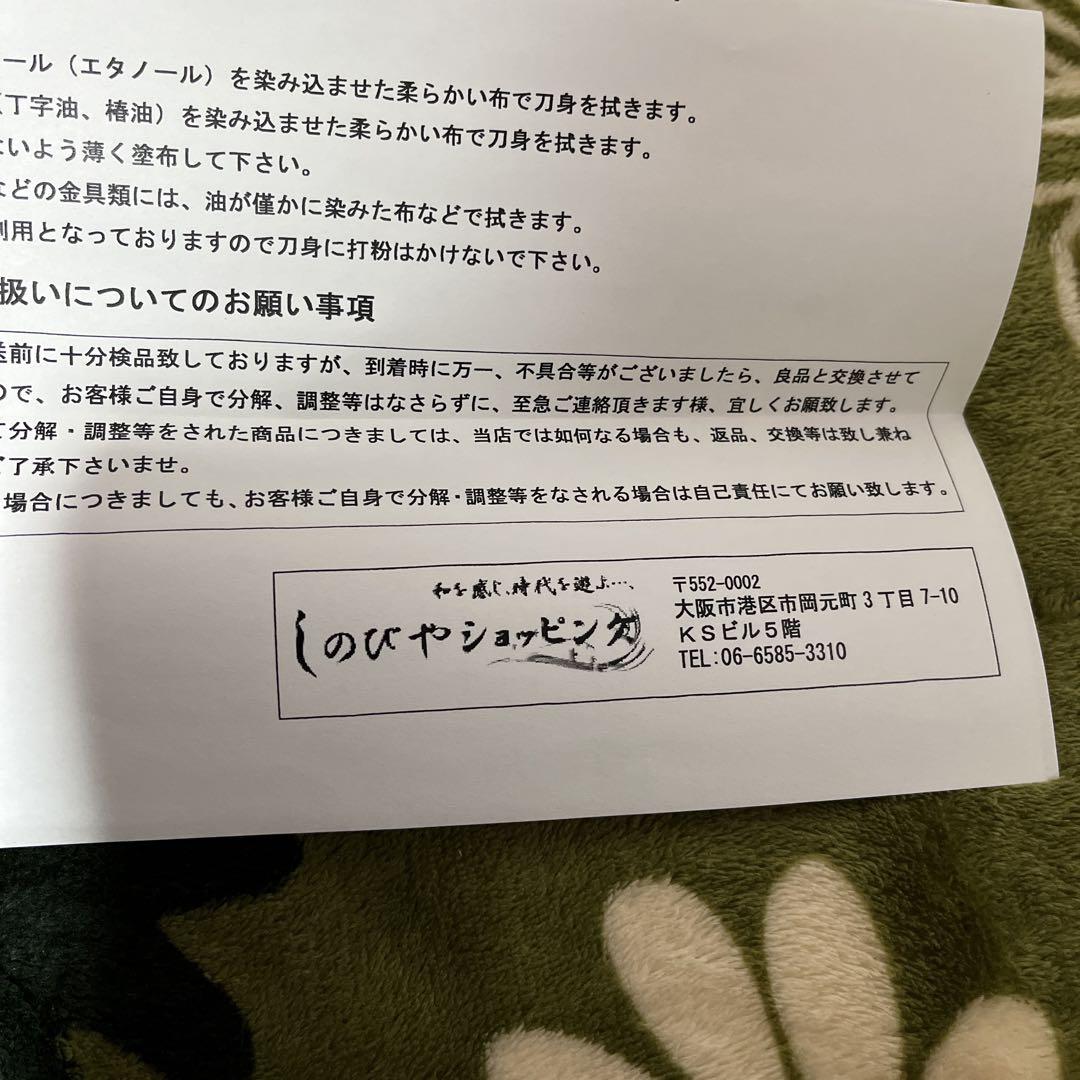 ール（エタノール）を染み込ませた柔らかい布で刀身を拭きます。
丁字油、椿油）を染み込ませた柔らかい布で刀身を拭きます。
いよう薄く塗布して下さい。
などの金具類には、油が僅かに染みた布などで拭きます。
用となっておりますので刀身に打粉はかけないで下さい。
扱いについてのお願い事項
前に十分検品致しておりますが、到着時に万一、不具合等がございましたら、良品と交換させて
ので、お客様ご自身で分解、調整等はなさらずに、至急ご連絡頂きます様、宜しくお願致します。
て分解・調整等をされた商品につきましては、当店では如何なる場合も、返品、交換等は致し兼ね
ご了承下さいませ。
場合につきましても、お客様ご自身で分解・調整等をなされる場合は自己責任にてお願い致します。
和を感じ、時代を遊ぶ…、
しのびやショッピング
〒552-0002
大阪市港区市岡元町３丁目7-10
ＫＳビル５階
TEL：06-6585-3310